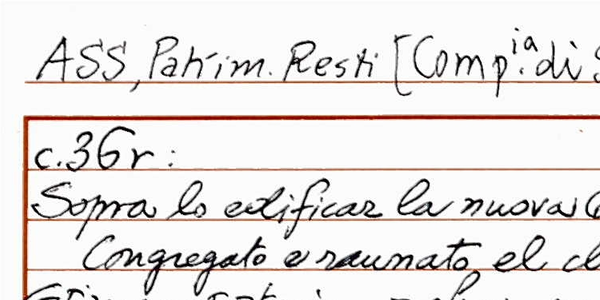 ASS, Patrim. Resti [Comp.ia di
c.36r:
Sopra lo edificar la nuova
Congregato e raunato el